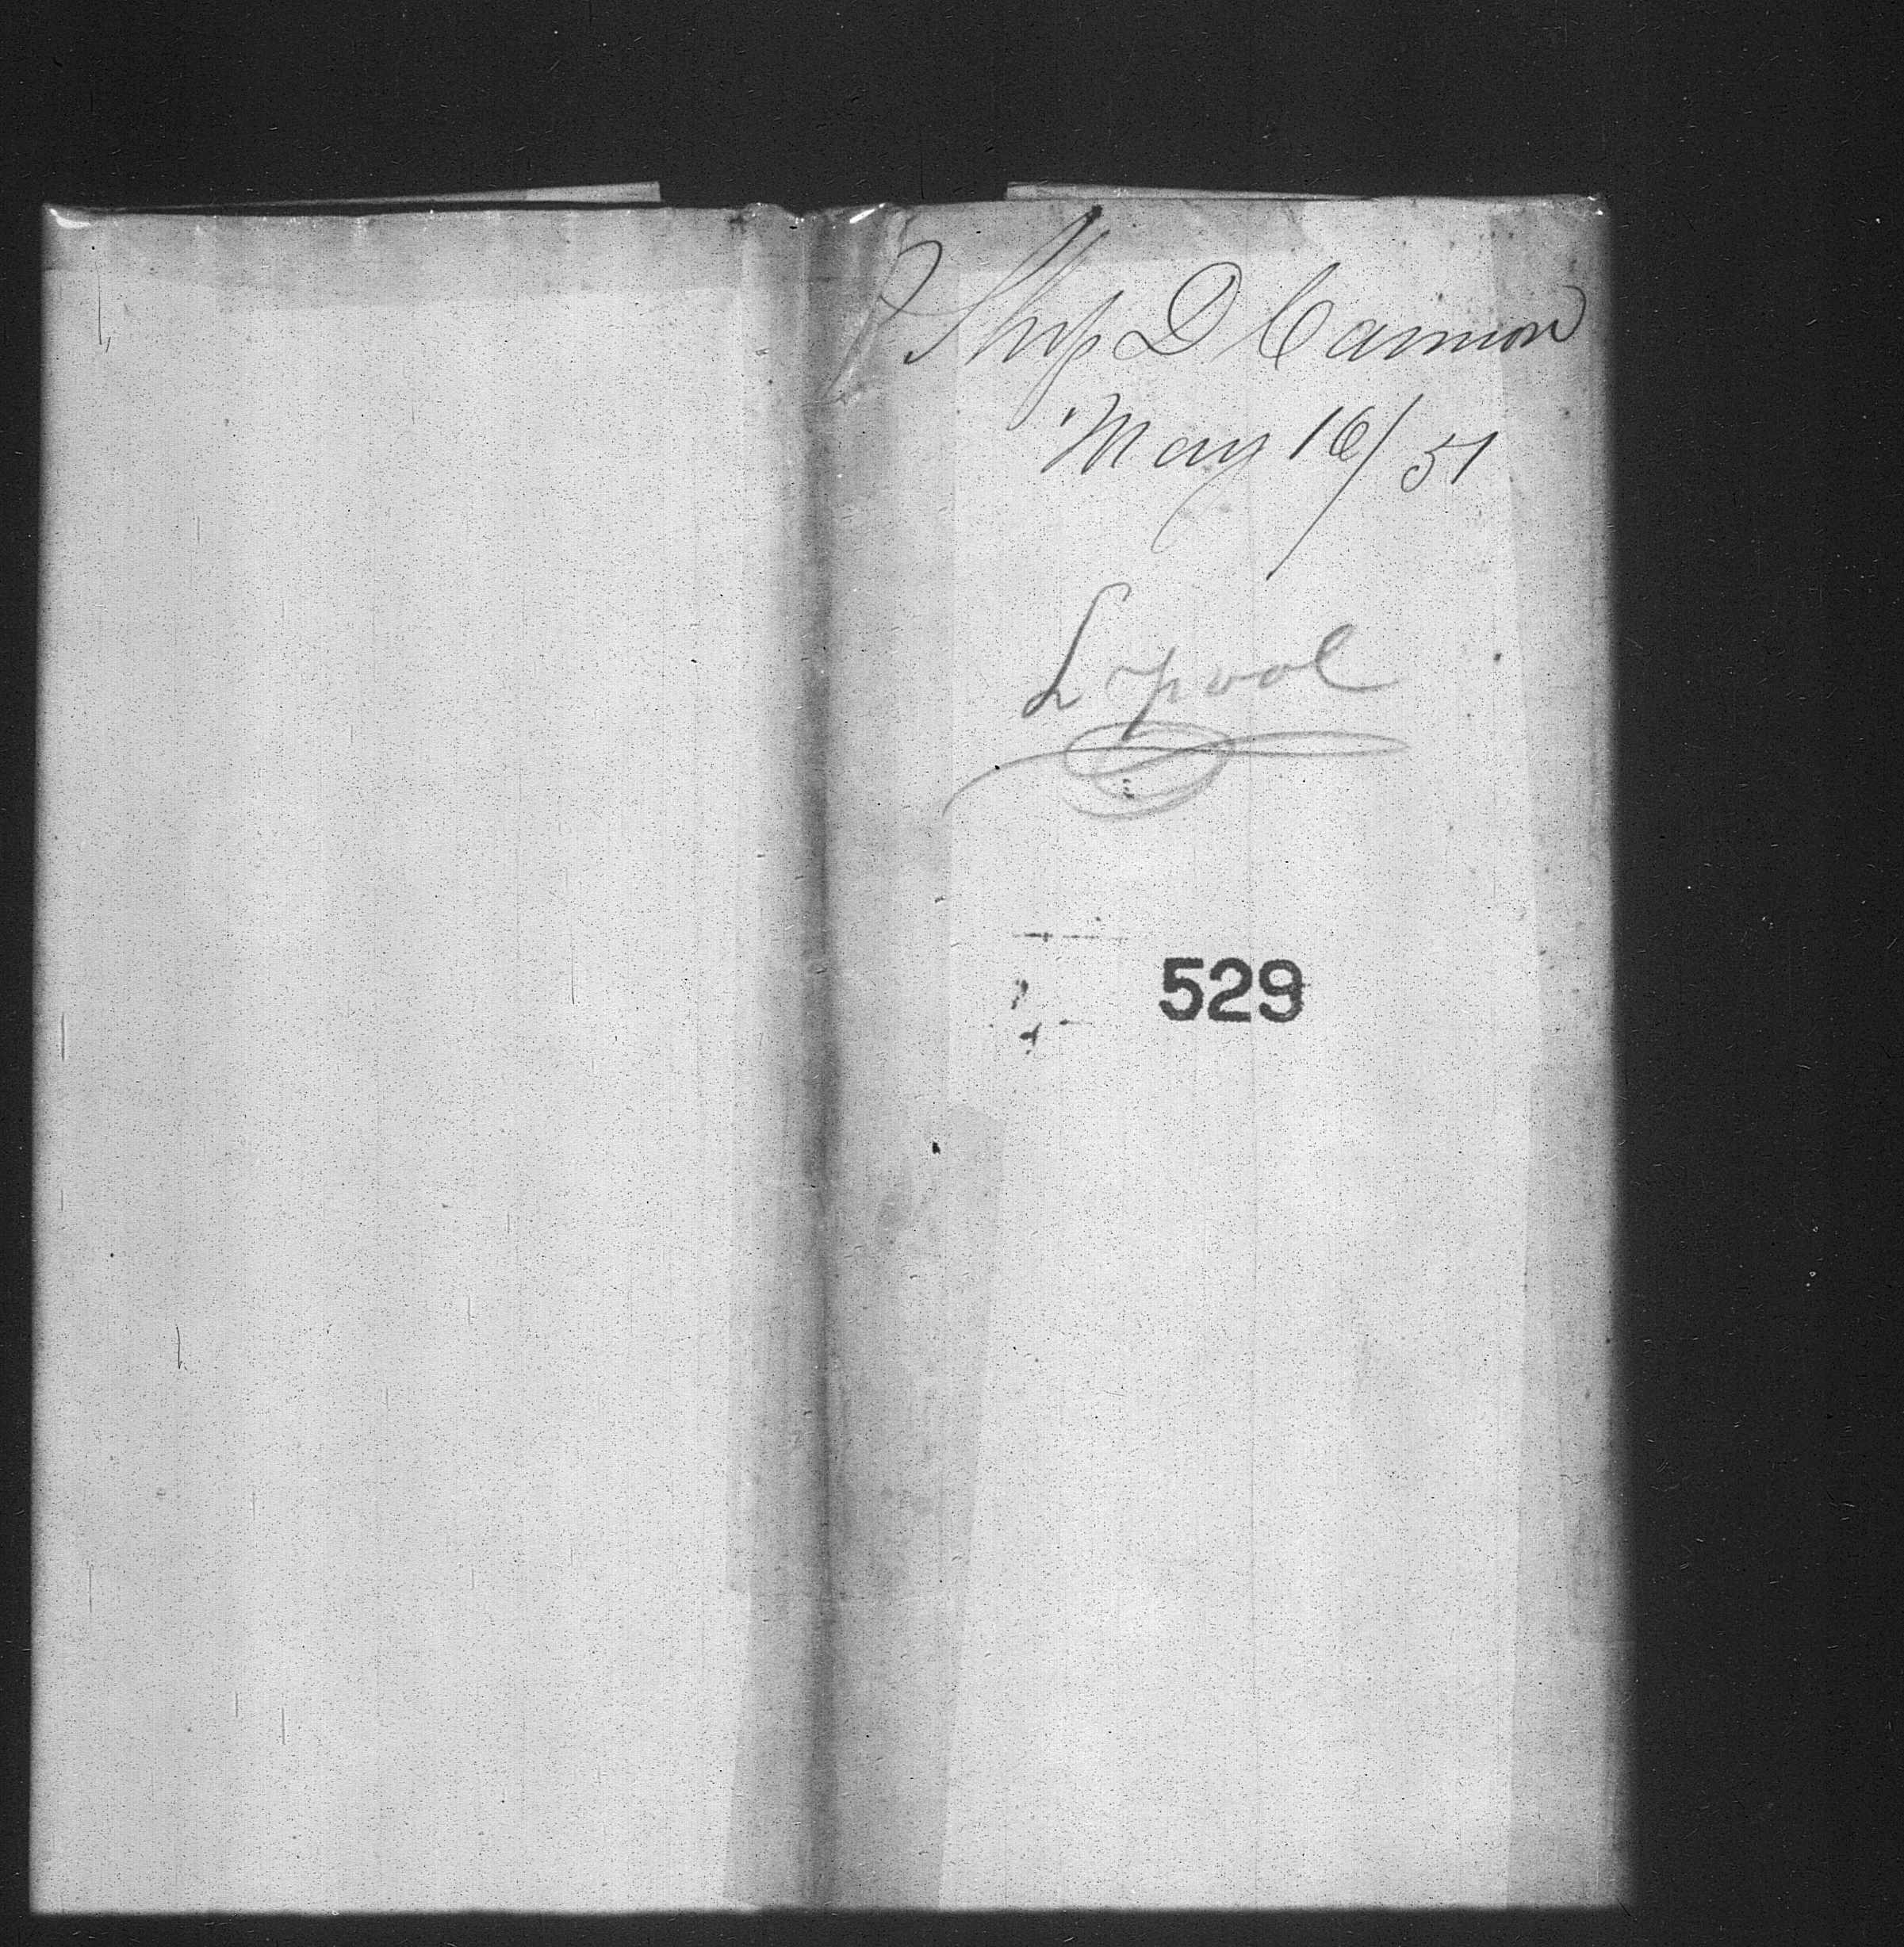 Ship D Cannon
May 16/51
Lpool
529